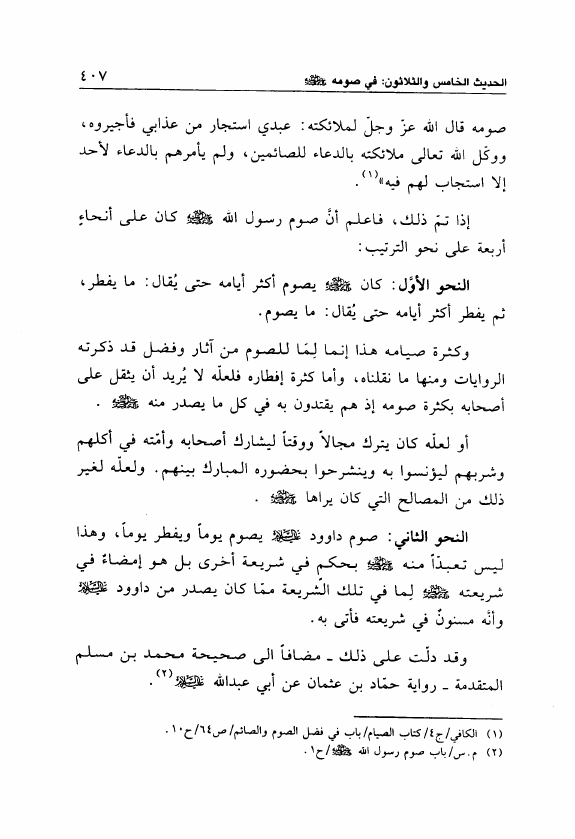 الحديث الخامس والثلاثون: في صومه ﷺ ٤٠٧
صومه قال الله عزّ وجلّ لملائكته: عبدي استجار من عذابي فأجيروه،
ووكّل الله تعالى ملائكته بالدعاء للصائمين، ولم يأمرهم بالدعاء لأحد
إلا استجاب لهم فيه»(١).
إذا تمّ ذلك، فاعلم أنَّ صوم رسول الله ﷺ كان على أنحاءٍ
أربعة على نحو الترتيب:
النحو الأوَّل: كان ﷺ يصوم أكثر أيامه حتى يُقال: ما يفطر،
ثم يفطر أكثر أيامه حتى يُقال: ما يصوم.
وكثرة صيامه هذا إنما لِمَا للصوم من آثار وفضل قد ذكرته
الروايات ومنها ما نقلناه، وأما كثرة إفطاره فلعلّه لا يُريد أن يثقل على
أصحابه بكثرة صومه إذ هم يقتدون به في كل ما يصدر منه ﷺ .
أو لعلّه كان يترك مجالاً ووقتاً ليشارك أصحابه وأمّته في أكلهم
وشربهم ليؤنسوا به وينشرحوا بحضوره المبارك بينهم. ولعلّه لغير
ذلك من المصالح التي كان يراها ﷺ .
النحو الثاني: صوم داوود عليه السلام يصوم يوماً ويفطر يوماً، وهذا
ليس تعبدّاً منه ﷺ بحكم في شريعة أخرى بل هو إمضاءً في
شريعته ﷺ لِما في تلك الشّريعة ممّا كان يصدر من داوود عليه السلام
وأنَّه مسنونٌ في شريعته فأتى به.
وقد دلّت على ذلك ـ مضافاً الى صحيحة محمد بن مسلم
المتقدمة ـ رواية حمّاد بن عثمان عن أبي عبدالله عليه السلام(٢).
(١) الكافي/ج٤/كتاب الصيام/باب في فضل الصوم والصائم/ص٦٤/ح١٠.
(٢) م.س/باب صوم رسول الله ﷺ/ح١.